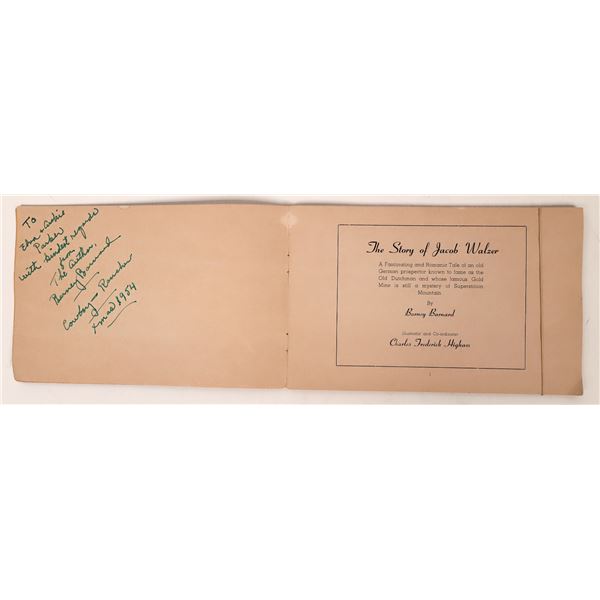 To
Edna & Archie
Parker
with kindest regards
from
The author,
Barney Barnard
Cowboy - Rancher
Xmas 1954
The Story of Jacob Walzer
A Fascinating and Romantic Tale of an old
German prospector known to fame as the
Old Dutchman and whose famous Gold
Mine is still a mystery of Superstition
Mountain
By
Barney Barnard
Illustrator and Co-ordinator
Charles Frederick Higham
1